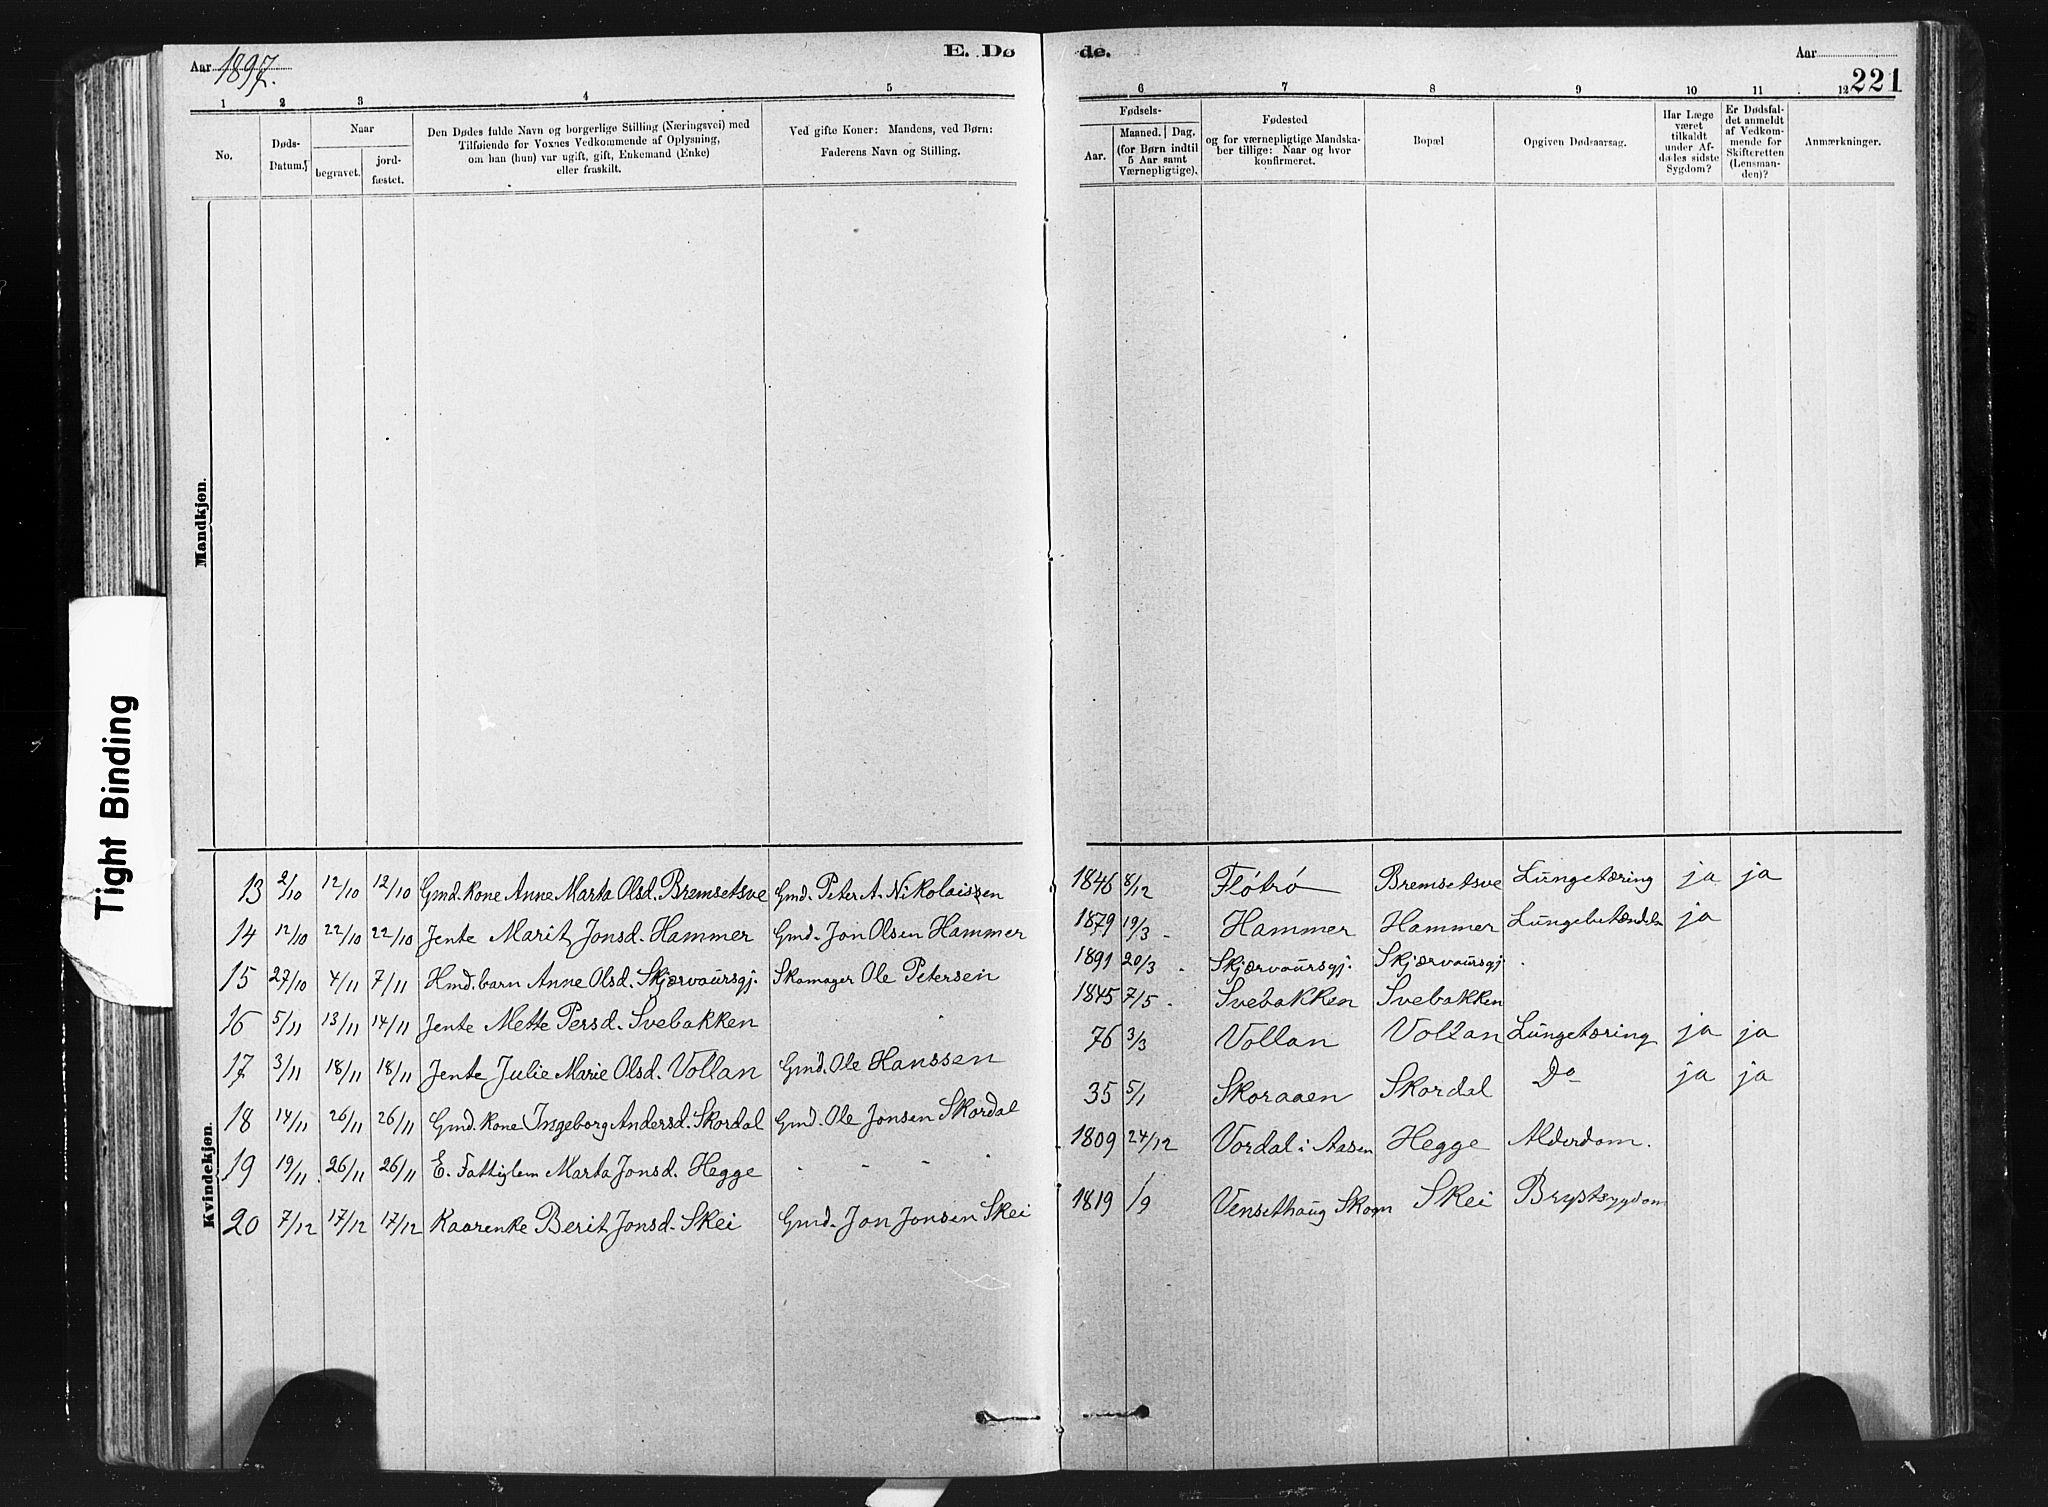 Aar 1897.
E. Dø
de.
Aar
221
1 2 3 4 5
6 7 8 9 10 11 12
No.
Døds-
Datum.
Naar
begravet.
jord-
fæstet.
Den Dødes fulde Navn og borgerlige Stilling (Næringsvei) med
Tilføiende for Voxnes Vedkommende af Oplysning,
om han (hun) var ugift, gift, Enkemand (Enke)
eller fraskilt.
Ved gifte Koner: Mandens, ved Børn:
Faderens Navn og Stilling.
Fødsels-
Aar.
Maaned. Dag.
(for Børn indtil
5 Aar samt
Værnepligtige).
Fødested
og for værnepligtige Mandska-
ber tillige: Naar og hvor
konfirmeret.
Bopæl
Opgiven Dødsaarsag.
Har Læge
været
tilkaldt
under Af-
dødes sidste
Sygdom?
Er Dødsfal-
det anmeldt
af Vedkom-
mende for
Skifteretten
(Lensman-
den)?
Anmærkninger.
Mandkjøn.
Tight Binding
Kvindekjøn.
13 2/10 12/10 12/10 Gmd. Kone Anne Marta Olsd. Bremsetsve Gmd. Peter A. Nikolaissen 1846 8/12 Flótró Bremsetsve Lungetæring ja ja
14 12/10 22/10 22/10 Jente Marit Jonsd. Hammer Gmd. Jon Olsen Hammer 1879 19/3 - Hammer Hammer Lungebetændelse ja
15 27/10 4/11 7/11 Hmd. barn Anne Olsd. Skjærvoursgj. Skomager Ole Petersen 1891 20/3 . Skjærvoursgj. Skjærvoursgj .
16 5/11 13/11 14/11 Jente Mette Persd. Svebakken 1845 7/5 . Svebakken Svebakken
17 3/11 18/11 18/11 Jente Julie Marie Olsd. Vollan Gmd. Ole Hanssen 76 3/3 Vollan Vollan Lungetæring ja ja
18 14/11 26/11 26/11 Gmd. Kone Ingeborg Andersd. Skordal Gmd. Ole Jonsen Skordal 35 5/1 Skoraaen Skordal Do ja ja
19 19/11 26/11 26/11 E. Fattiglem Marta Jonsd. Hegge - - - - 1809 24/12 Vordal i Aasen Hegge Alderdom.
20 7/12 17/12 17/12 Kaarenke Berit Jonsd. Skei Gmd. Jon Jonsen Skei 1819 /9 Vensethaug Skogn Skei Brystsygdom